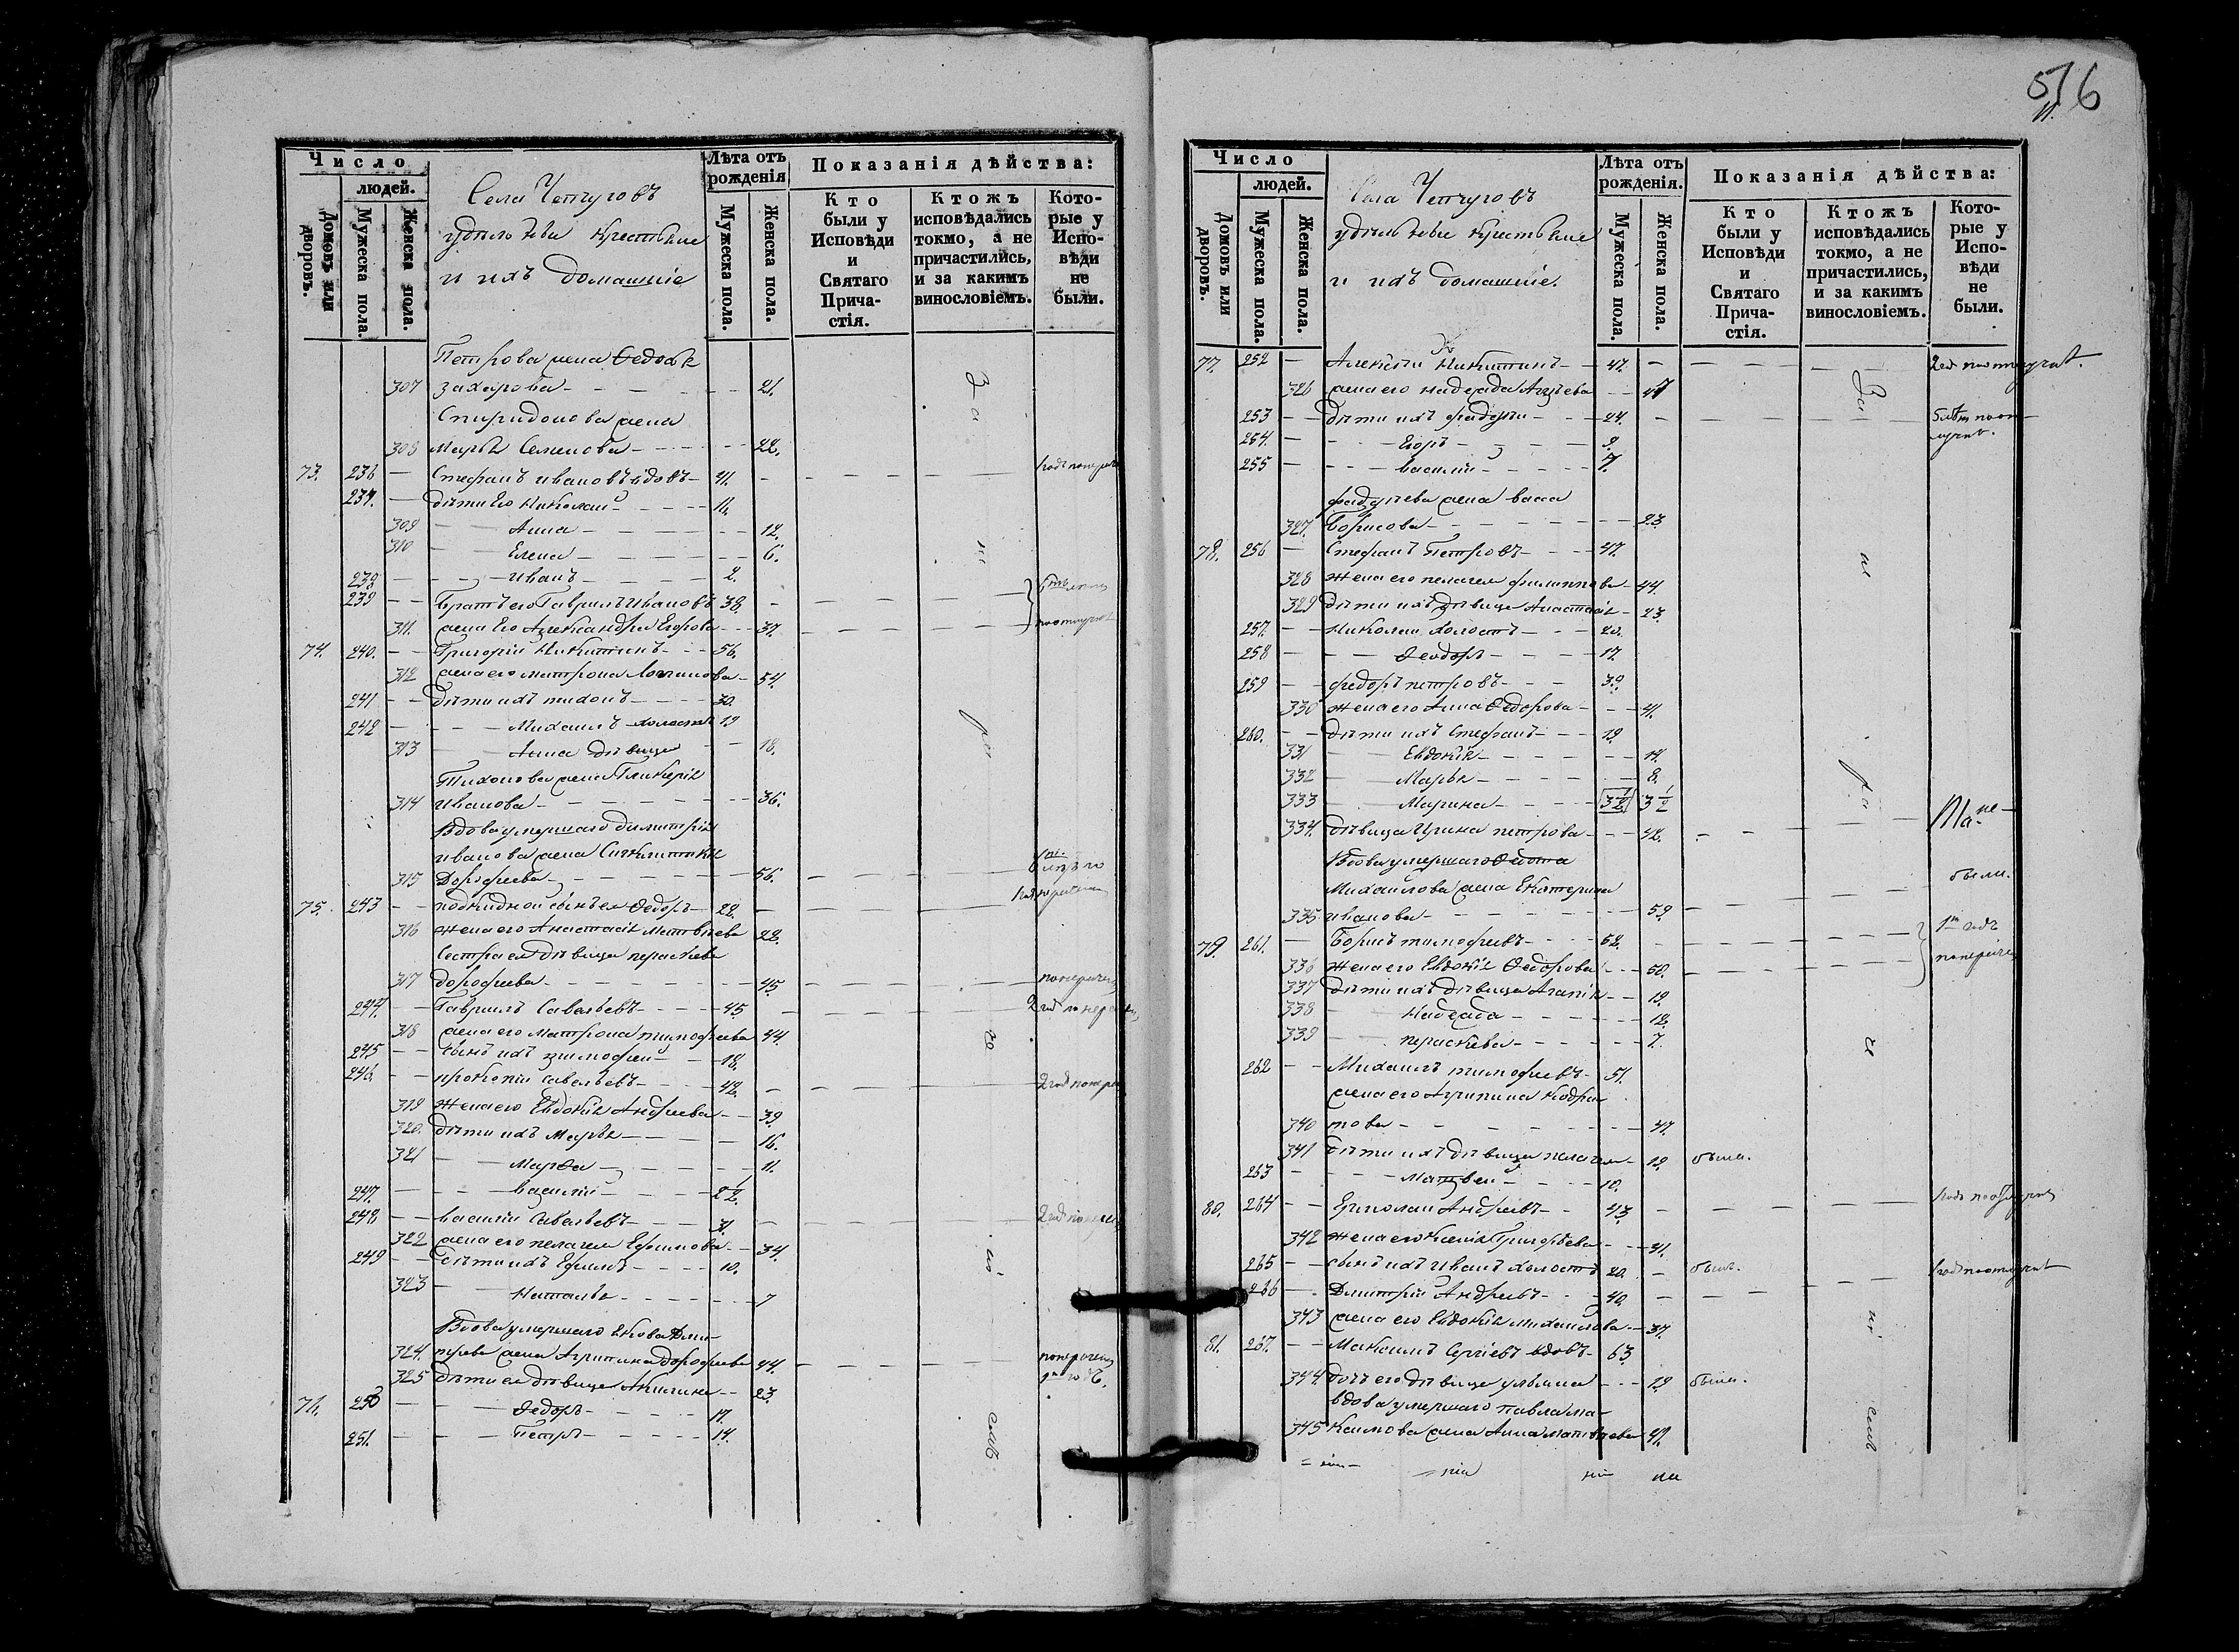 576
Число
людей.
Домовъ или дворовъ.
Мужеска пола.
Женска пола.
Села Чепчуговъ
удѣльные крестьяне
и ихъ домашніе
Лѣта отъ рожденія
Мужеска пола.
Женска пола.
Показанія дѣйства:
Кто были у Исповѣди и Святаго Прича-стія.
Ктожъ исповѣдались токмо, а не причастились, и за какимъ винословіемъ.
Кото-рые у Испо-вѣди не были.
Петрова жена Ѳедосья
307 Захарова 21.
Спиридонова жена
308 Марья Семенова 22.
73. 236 Стефанъ Ивановъ вдовъ 41.
237. дѣти Его Николай 14.
309 Анна 12.
310 Елена 6.
238 Иванъ 2.
239 Братъ его Гаврилъ Ивановъ 38.
311. жена Его Александра Егорова 37.
74. 240. Григорій Никитинъ 56.
312 жена его Матрона Логинова 54.
241 дѣти ихъ Тихонъ 30.
242 Михаилъ холостъ 19
313 Анна дѣвица 18.
Тихонова жена Гликерія
314 Иванова 36.
Вдова умершаго Димитрія
Иванова жена Синклитикія
315 Дорофеева 56.
75. 243 подкидной сынъ ея Ѳедоръ 22.
316 жена его Анастасія Матвѣева 22.
Сестра ея дѣвица Пераскева
317 Дорофеева 45.
244. Гаврилъ Савельевъ 45
318 жена его Матрона Тимофеева 44.
245 сынъ ихъ Тимофей 18.
246. Прокопій Савельевъ 42.
319 жена его Евдокія Андреева 39.
320. дѣти ихъ Марья 16.
321 Марѳа 11.
247. Василій 2½
248. Василій Савельевъ
322 жена его Пелагея Ефимова 34.
249 дѣти ихъ Ефимъ 10.
323 Наталья 7
Вдова умершаго
324. жена Агрипина Дорофеева 44.
325 дѣти ея дѣвица Акилина 23.
76. 250 Ѳедоръ 17.
251. Петръ 14.
Число
людей.
Домовъ или дворовъ.
Мужеска пола.
Женска пола.
Села Чепчуговъ
удѣльные крестьяне
и ихъ домашніе.
Лѣта отъ рожденія.
Мужеска пола
Женска пола.
Показанія дѣйства:
Кто были у Исповѣди и Святаго Прича-стія.
Ктожъ исповѣдались токмо, а не причастились, и за какимъ винословіемъ.
Кото-рые у Испо-вѣди не были.
77. 252 Алексѣй Никитинъ 47.
326 жена его Надежда 47
253 дѣти ихъ Фадѣй 24.
254. Егоръ 9.
255 Василій 7.
Фадѣева жена Васса
327. Борисова 23
78. 256 Стефанъ Петровъ 47.
328 жена его Пелагея Филиппова 44.
329 дѣти ихъ дѣвица Анастасія 23.
257. Николай холостъ 20.
258 Ѳеодоръ 17.
259 Федоръ Петровъ 39.
330 жена его Анна Ѳедорова 41.
260. дѣти ихъ Стефанъ 19.
331 Евдокія 14.
332 Марья 8.
333 Марина 3½ 3½
334. дѣвица Ирина Петрова 42.
Вдова умершаго Ѳедота
Михайлова жена Екатерина
335. Иванова 59.
были.
79. 261. Борисъ Тимофеевъ 52.
336 жена его Евдокія Ѳедорова 50.
337 дѣти ихъ дѣвица Агапія 19.
338 Надежда 12.
339 Пераскева 7.
262 Михаилъ Тимофеевъ 51.
жена его Агрипина Кодра-
340 това 47.
341 дѣти ихъ дѣвица Пелагея 19. была.
263 Матвей 10.
80. 264 Ермолай Андреевъ 43.
342 жена его Ксенія Григорьева 41.
265 сынъ ихъ Иванъ холостъ 20. былъ.
266 Дмитрій Андреевъ 40.
343 жена его Евдокія Михайлова 37.
81. 267. Максимъ Сергіевъ вдовъ 63
344. дочь его дѣвица Ульяна 19 была.
вдова умершаго Павла Ма-
345 ксимова жена Анна Матвѣева 47.